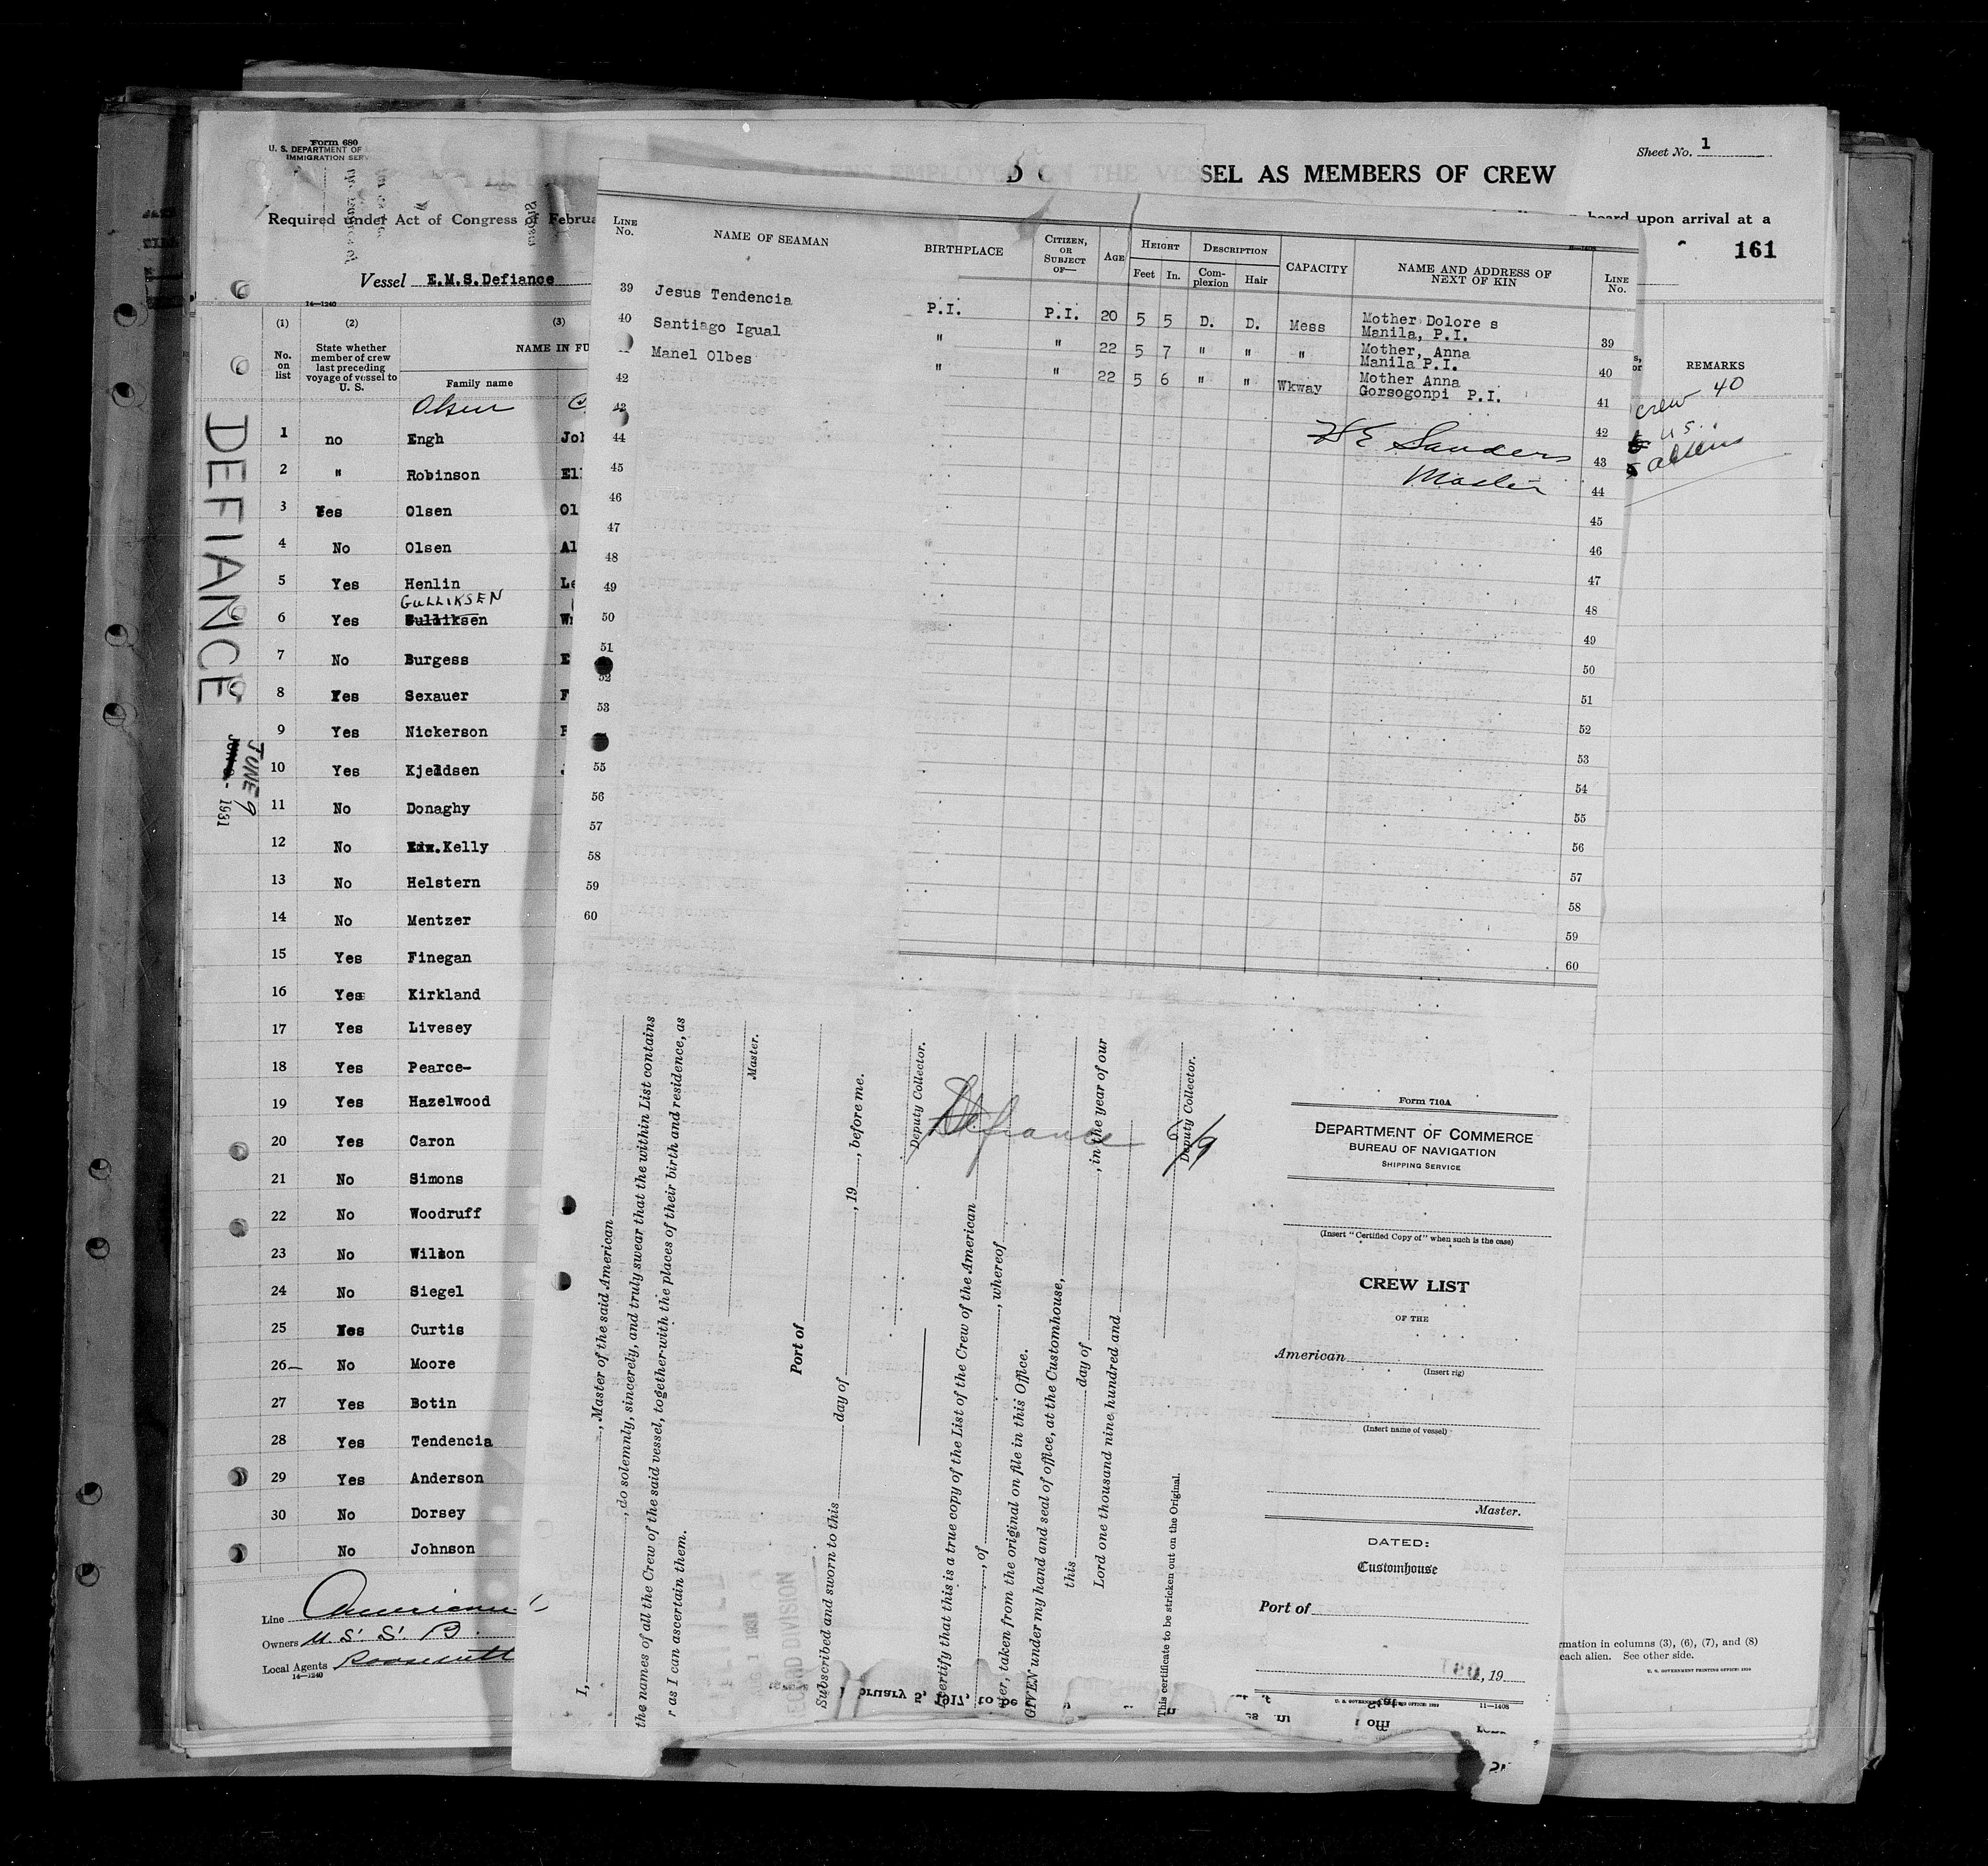 Form 680
U. S. DEPARTMENT OF
IMMIGRATION SERV
Sheet No. 1
SEL AS MEMBERS OF CREW
Required under Act of Congress of Februa
board upon arrival at a
161
Vessel E.M.S.Defiance
14—1240
(1) (2) (3)
No. on list
State whether member of crew last preceding voyage of vessel to U. S.
NAME IN FU
Family name
REMARKS
crew 40
U S..
aliens
DEFIANCE
JUNE 9
1931
Olsen
1 no Engh Joh
2 " Robinson Ell
3 Yes Olsen Ol
4 No Olsen Al
5 Yes Henlin Le
GULLIKSEN
6 Yes Gulliksen
7 No Burgess E
8 Yes Sexauer F
9 Yes Nickerson
10 Yes Kjeldsen
11 No Donaghy
12 No Edw.Kelly
13 No Helstern
14 No Mentzer
15 Yes Finegan
16 Yes Kirkland
17 Yes Livesey
18 Yes Pearce-
19 Yes Hazelwood
20 Yes Caron
21 No Simons
22 No Woodruff
23 No Wilson
24 No Siegel
25 Yes Curtis
26 No Moore
27 Yes Botin
28 Yes Tendencia
29 Yes Anderson
30 No Dorsey
No Johnson
Line American
Owners U. S. S. B.
Local Agents Roosevelt
14—1240
LINE No.
NAME OF SEAMAN
BIRTHPLACE
CITIZEN, OR SUBJECT OF—
AGE
HEIGHT
Feet In.
DESCRIPTION
Complexion Hair
CAPACITY
NAME AND ADDRESS OF NEXT OF KIN
LINE No.
39 Jesus Tendencia P.I. P.I. 20 5 5 D. D. Mess Mother Dolore s
Manila, P.I. 39
40 Santiago Igual " " 22 5 7 " " " Mother, Anna
Manila P.I. 40
Manel Olbes " " 22 5 6 " " Wkway Mother Anna
Gorsogonpi P.I. 41
42 42
43 43
44 44
45 45
46 46
47 47
48 48
49 49
50 50
51 51
52 52
53 53
54
55 55
56 56
57 57
58 58
59 59
60 60
H E Sanders
Master
I, , Master of the said American
, do solemnly, sincerely, and truly swear that the within List contains
the names of all the Crew of the said vessel, together with the places of their birth and residence, as
r as I can ascertain them.
Master.
Port of
Subscribed and sworn to this day of , 19 , before me.
Deputy Collector.
ertify that this is a true copy of the List of the Crew of the American
, of , whereof
er, taken from the original on file in this Office.
GIVEN under my hand and seal of office, at the Customhouse,
this day of , in the year of our
Lord one thousand nine hundred and
Deputy Collector.
This certificate to be stricken out on the Original.
Defiance 6/9
RECORD DIVISION
bruary 5, 1917, to be
Form 710A
DEPARTMENT OF COMMERCE
BUREAU OF NAVIGATION
SHIPPING SERVICE
(Insert "Certified Copy of" when such is the case)
CREW LIST
OF THE
American
(Insert rig)
(Insert name of vessel)
Master.
DATED:
Customhouse
Port of
, 19
11—1408
rmation in columns (3), (6), (7), and (8)
each alien. See other side.
U. S. GOVERNMENT PRINTING OFFICE